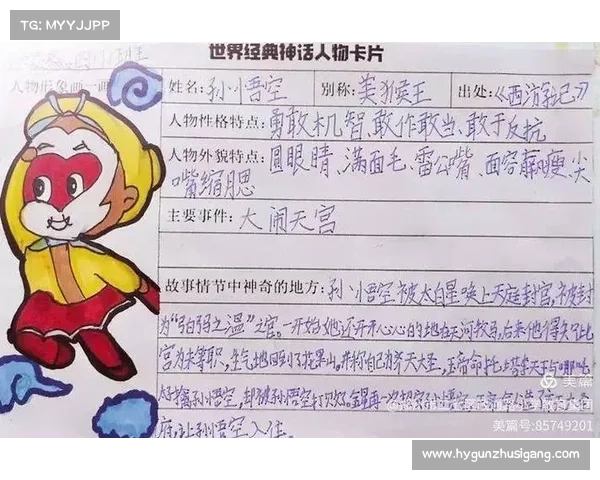 TG: MYYJJPP
世界经典神话人物卡片
人物形象画一画
姓名:孙悟空 别称:美猴王 出处:《西游记》
人物性格特点:勇敢机智、敢作敢当、敢于反抗
人物外貌特点:圆眼睛、满面毛、雷公嘴、面容瘦、尖
嘴缩腮
主要事件:大闹天宫
故事情节中神奇的地方:孙悟空被太白星唤上天庭封官,被封
为“弼马温”之官。一开始她还开开心心的地在天河牧马,后来他得知此
官为末等职,生气地回到了花果山。并称自己为齐天大圣,玉帝命托塔李天王与哪吒
捉拿孙悟空,却被孙悟空打败。
府,让孙悟空入住。
美篇
美篇号:85749201
www.hygunzhusigang.com